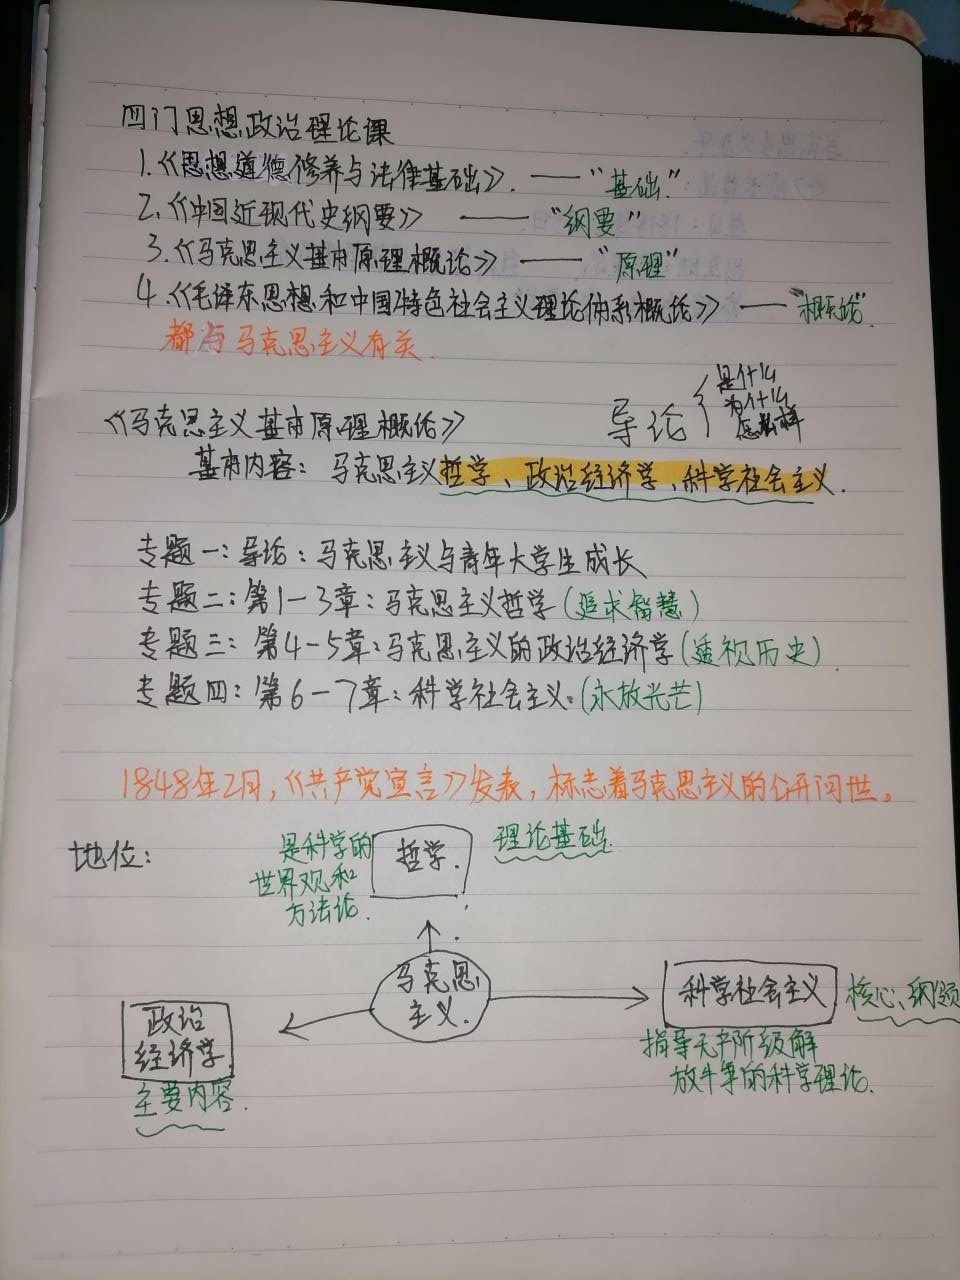 四门思想政治理论课
1.《思想道德修养与法律基础》. —— “基础.”
2.《中国近现代史纲要》 —— “纲要”
3.《马克思主义基本原理概论》 —— “原理”
4.《毛泽东思想和中国特色社会主义理论体系概论》 —— “概论”
都与马克思主义有关.
《马克思主义基本原理概论》
导论
是什么
为什么
怎么样
基本内容：马克思主义哲学、政治经济学、科学社会主义.
专题一：导论：马克思主义与青年大学生成长
专题二：第1-3章：马克思主义哲学(追求智慧)
专题三：第4-5章：马克思主义的政治经济学(透视历史)
专题四：第6-7章：科学社会主义.(永放光芒)
1848年2月,《共产党宣言》发表,标志着马克思主义的公开问世。
地位：
是科学的
世界观和
方法论.
哲学.
理论基础.
马克思
主义.
政治
经济学
主要内容.
科学社会主义
核心、纲领
指导无产阶级解
放斗争的科学理论.